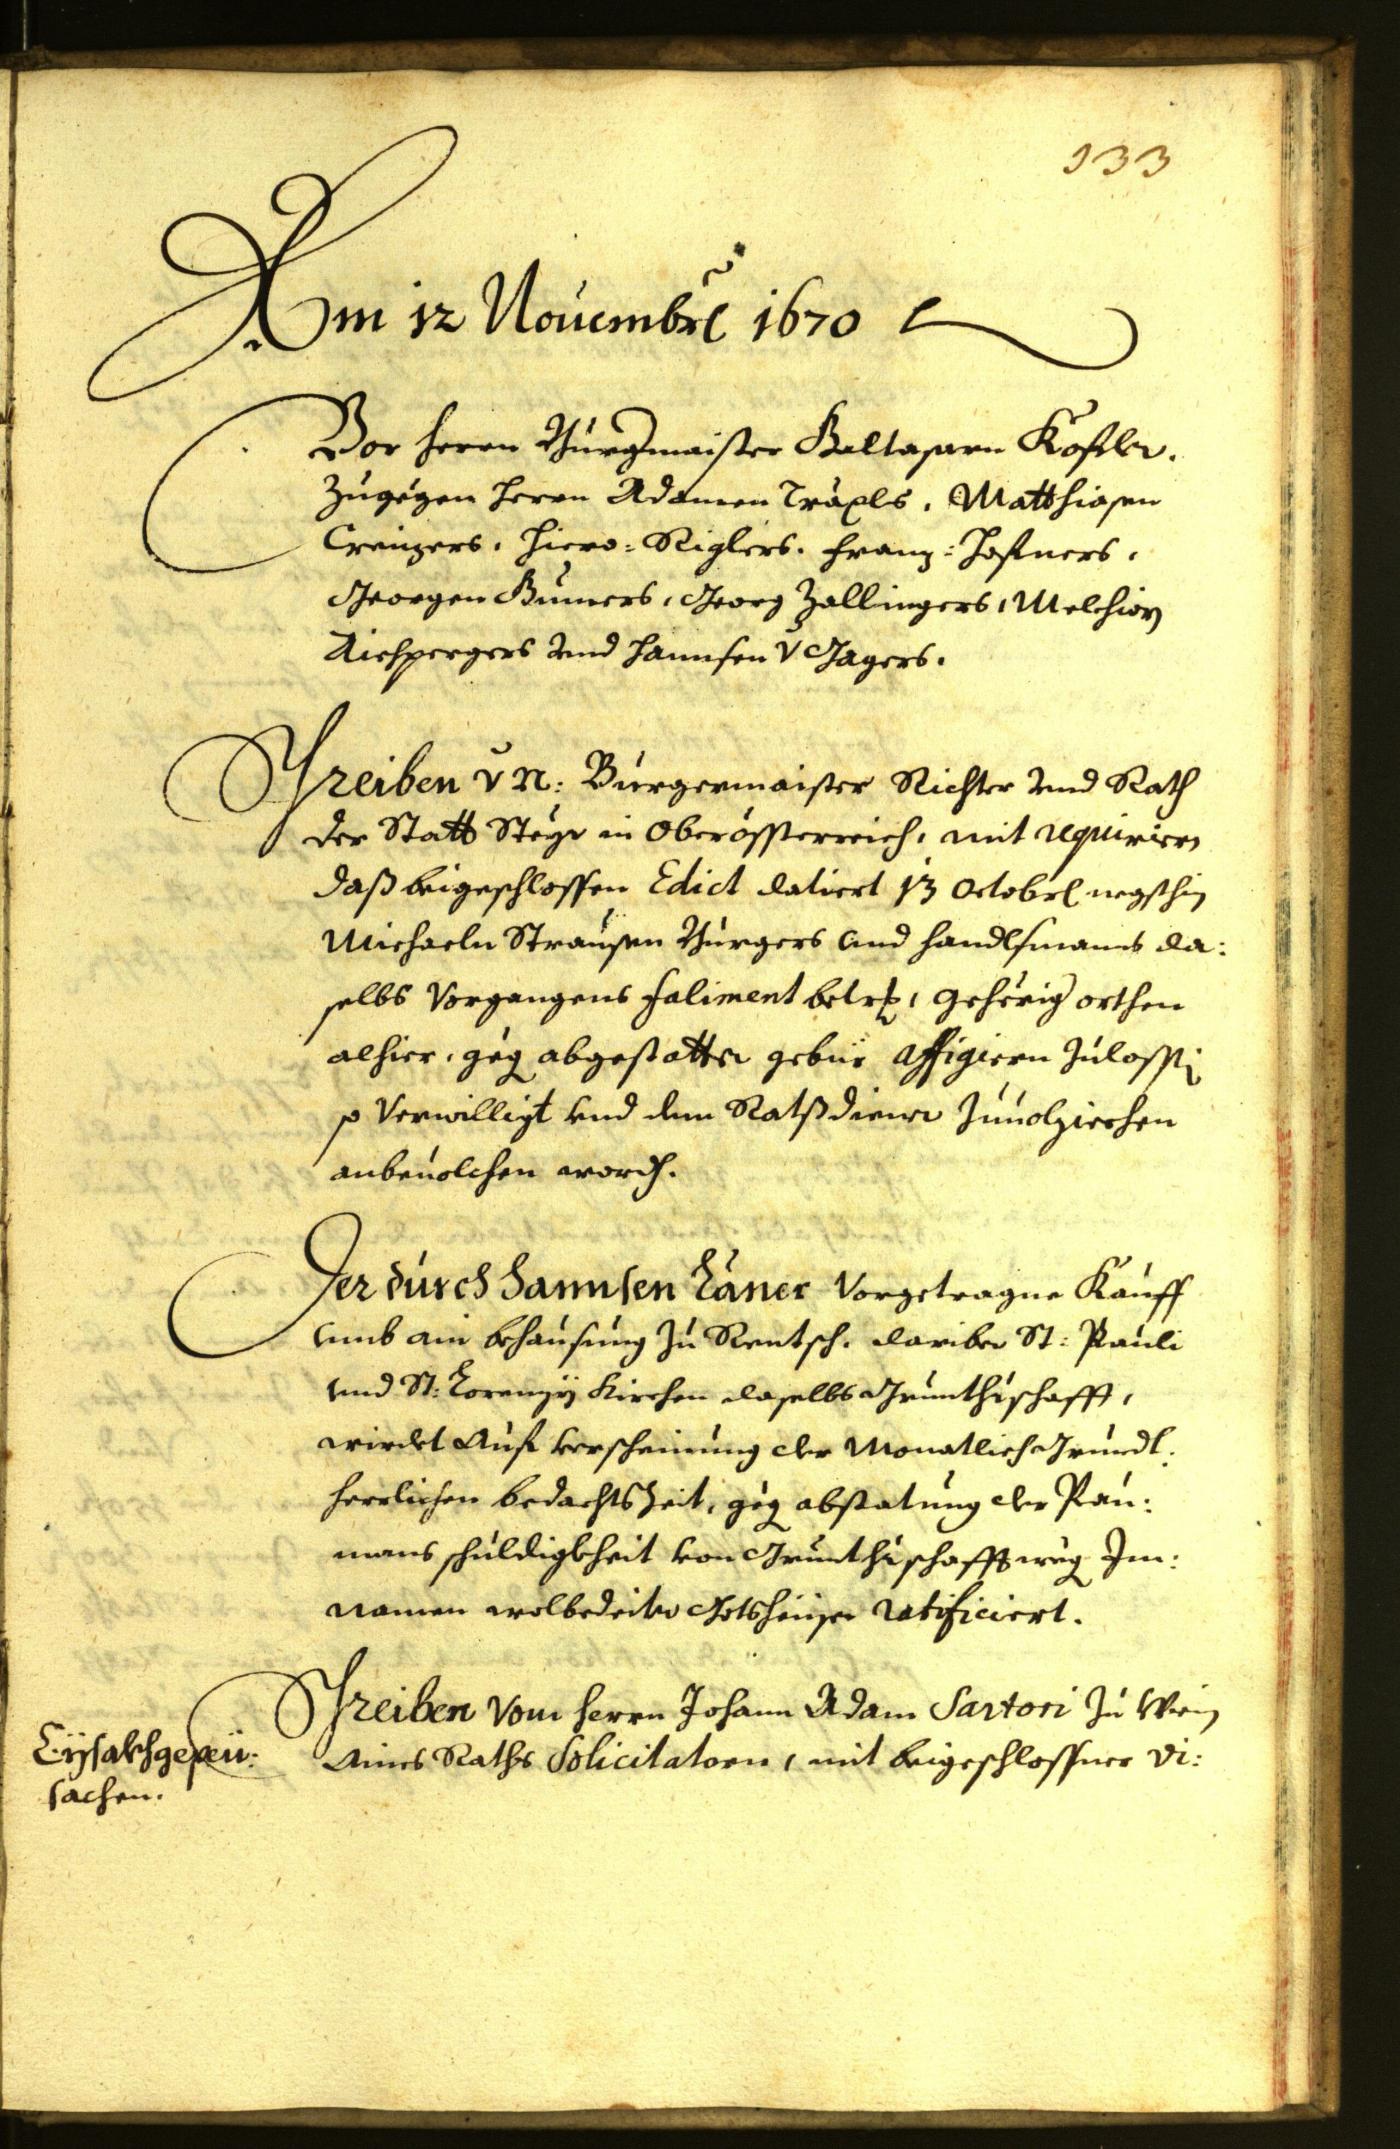 133
Am 12 Nouembrs 1670
Vor herrn Burgmaister Baltasarn Kofler.
Zugegen herrn Adamen Träxls, Matthiasen
Creizers, Hiero: Riglers, Franz: Hafners,
Georgen Bumers, Georg Zallingers, Melchiorn
Aichpergers vnd Hannsen V Jagers.
Schreiben v N: Burgermaister Richter vnd Rath
der Statt Steyr in Oberössterreich, mit requirirn
daß beigeschlossen Edict datiert 13 Octobrs negsthin
Michaeln Strausen Burgers vnd handlsmanns da:
selbs Vorgangens faliment betrf, gehörig orthen
alhier, geg abgestatter gebür affigiern zulassen
so Verwilligt vnd dem Ratsdiener zuuolziechen
anbeuolchen worden.
Der durch Hannsen Laner Vorgetragne Kauff
vmb ain behausung zu Rentsch, dariber St: Pauli
vnd St: Lorenzy Kirchen daselbs Grundthschafft,
wirdet Auf verscheinung der Monatlich Grundt:
herrlichen bedachts Zeit, geg abstatung der Pau:
mans schuldigkheit von Grundthschafft weg Im:
namen wolbedeiter Gotsheuser ratificiert.
Schreiben vom herrn Johann Adam Sartori zu Wien
Aines Raths Solicitatorn, mit beigeschlossner di:
Eysakhgepeü:
sachen.